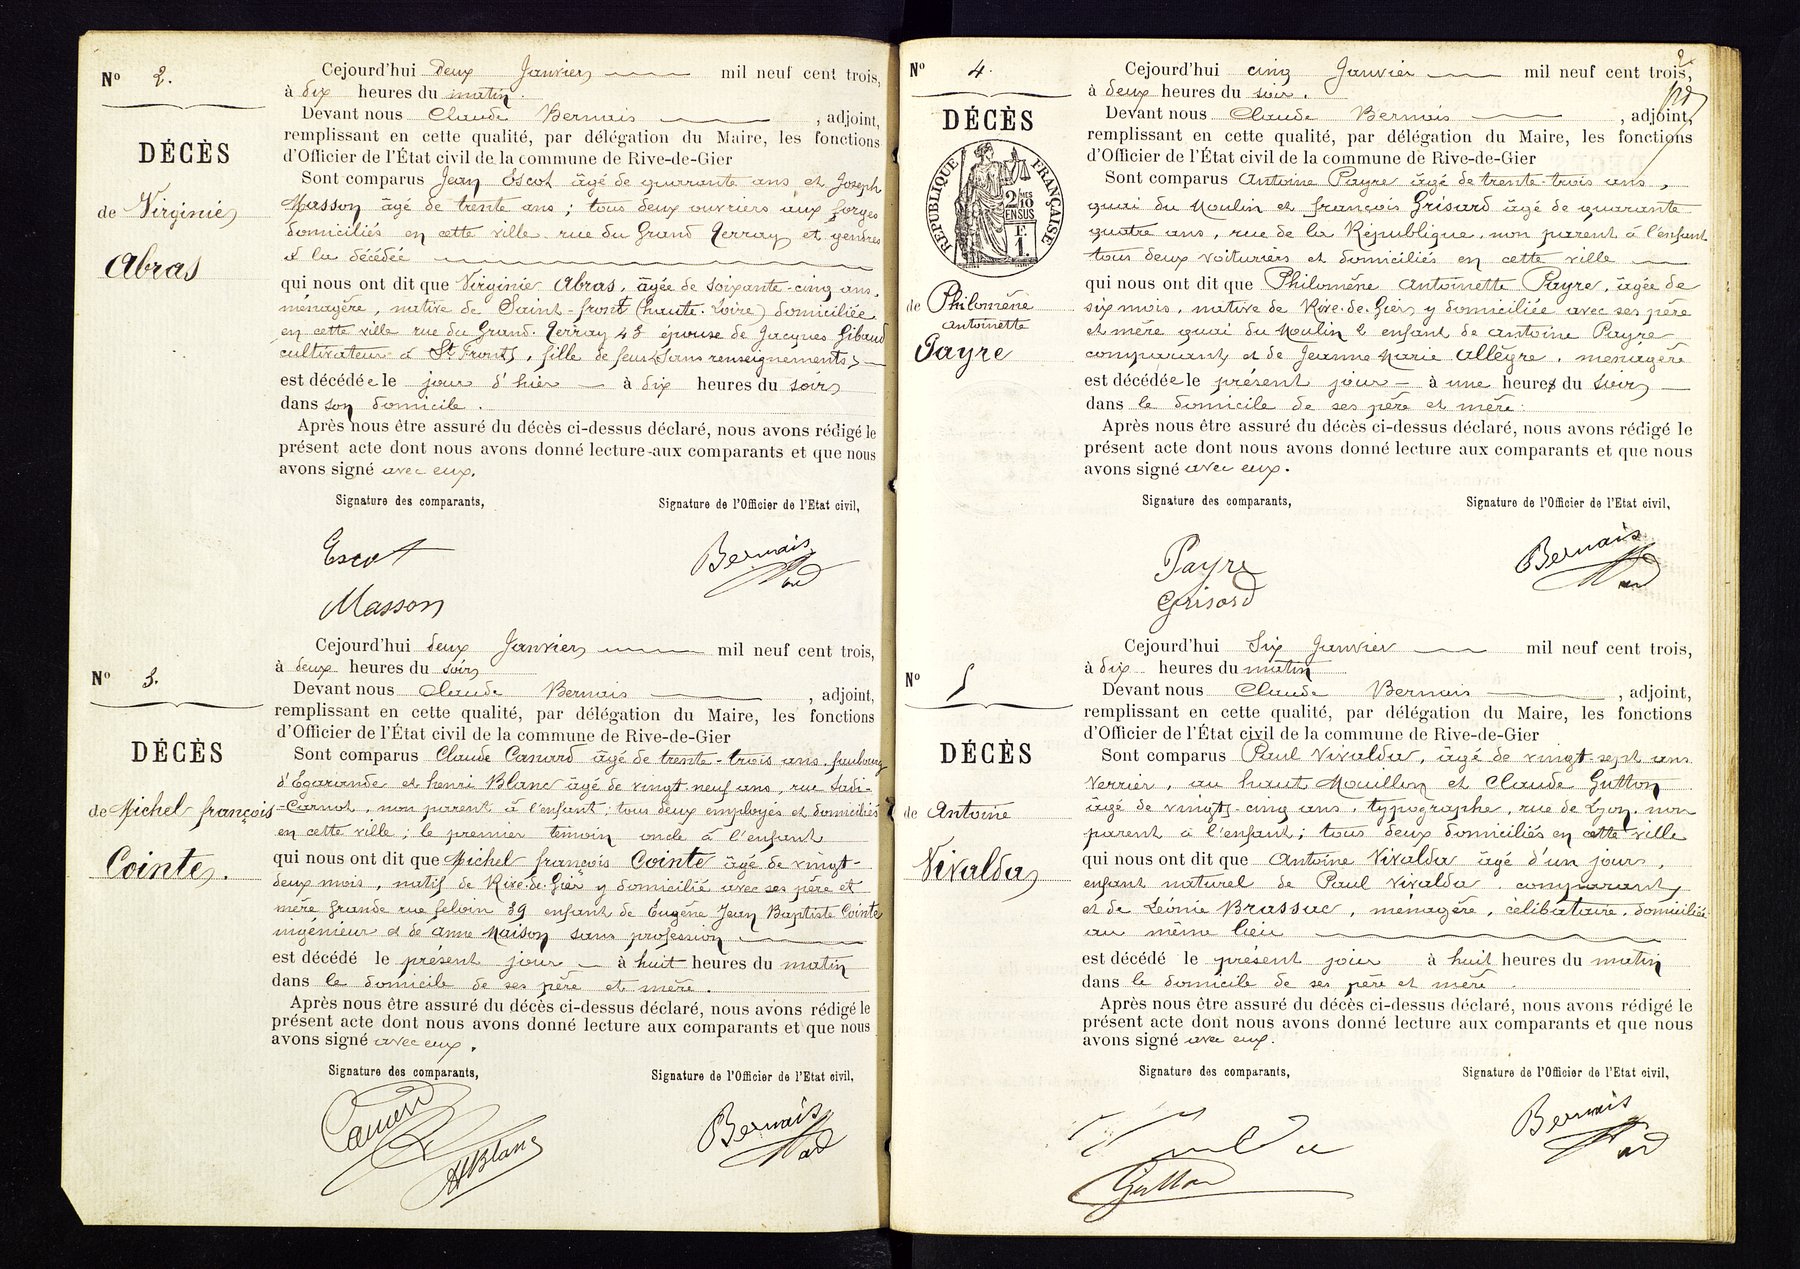 N° 2.
DÉCÈS
de Virginie
Abras
Cejourd'hui deux Janvier mil neuf cent trois,
à dix heures du matin.
Devant nous Claude Bernais , adjoint,
remplissant en cette qualité, par délégation du Maire, les fonctions
d'Officier de l'État civil de la commune de Rive-de-Gier
Sont comparus Jean Escot âgé de quarante ans et Joseph
Masson âgé de trente ans ; tous deux ouvriers aux forges
domiciliés en cette ville rue du Grand Perray et gendres
à la décédée
qui nous ont dit que Virginie Abras, âgée de soixante-cinq ans,
ménagère, native de Saint-front (haute-Loire) domiciliée
en cette ville rue du Grand-Perray 43 épouse de Jacques Gibaud
cultivateur à St Front, fille de feus (sans renseignements)
est décédée le jour d'hier à dix heures du soir
dans son domicile.
Après nous être assuré du décès ci-dessus déclaré, nous avons rédigé le
présent acte dont nous avons donné lecture aux comparants et que nous
avons signé avec eux.
Signature des comparants,
Signature de l'Officier de l'Etat civil,
Escot
Bernais
Masson
N° 3.
DÉCÈS
de Michel françois
Cointe.
Cejourd'hui deux Janvier mil neuf cent trois,
à deux heures du soir
Devant nous Claude Bernais , adjoint,
remplissant en cette qualité, par délégation du Maire, les fonctions
d'Officier de l'État civil de la commune de Rive-de-Gier
Sont comparus Claude Canard âgé de trente-trois ans, faubourg
d'Egarande et henri Blanc âgé de vingt neuf ans, rue Sadi-
-Carnot, non parent à l'enfant ; tous deux employés et domiciliés
en cette ville ; le premier témoin oncle à l'enfant
qui nous ont dit que Michel françois Cointe âgé de vingt-
deux mois, natif de Rive-de-Gier y domicilié avec ses père et
mère Grande rue feloin 39 enfant de Eugène Jean Baptiste Cointe
ingénieur et de Anne Maison sans profession
est décédé le présent jour à huit heures du matin
dans le domicile de ses père et mère.
Après nous être assuré du décès ci-dessus déclaré, nous avons rédigé le
présent acte dont nous avons donné lecture aux comparants et que nous
avons signé avec eux.
Signature des comparants,
Signature de l'Officier de l'Etat civil,
Canard
Bernais
HBlanc
2
N° 4.
DÉCÈS
RÉPUBLIQUE FRANÇAISE
2/10 EN SUS
F.
1.
de Philomène
Antoinette
Payre
Cejourd'hui cinq Janvier mil neuf cent trois,
à deux heures du soir.
Devant nous Claude Bernais , adjoint,
remplissant en cette qualité, par délégation du Maire, les fonctions
d'Officier de l'État civil de la commune de Rive-de-Gier
Sont comparus Antoine Payre âgé de trente-trois ans,
quai du Moulin et françois Grisard âgé de quarante
quatre ans, rue de la République, non parent à l'enfant
tous deux voituriers et domiciliés en cette ville
qui nous ont dit que Philomène Antoinette Payre, âgée de
six mois, native de Rive-de-Gier y domiciliée avec ses père
et mère quai du Moulin 2 enfant de Antoine Payre
comparant et de Jeanne Marie Allègre, ménagère
est décédée le présent jour à une heure du soir
dans le domicile de ses père et mère.
Après nous être assuré du décès ci-dessus déclaré, nous avons rédigé le
présent acte dont nous avons donné lecture aux comparants et que nous
avons signé avec eux.
Signature des comparants,
Signature de l'Officier de l'Etat civil,
Payre
Bernais
Grisard
N° 5
DÉCÈS
de Antoine
Vivalda
Cejourd'hui Six Janvier mil neuf cent trois,
à dix heures du matin
Devant nous Claude Bernais , adjoint,
remplissant en cette qualité, par délégation du Maire, les fonctions
d'Officier de l'État civil de la commune de Rive-de-Gier
Sont comparus Paul Vivalda, âgé de vingt-sept ans
verrier, au haut Mouillon et Claude Gutton
âgé de vingt-cinq ans, typographe, rue de Lyon, non
parent à l'enfant ; tous deux domiciliés en cette ville
qui nous ont dit que Antoine Vivalda âgé d'un jour,
enfant naturel de Paul Vivalda, comparant,
et de Léonie Brassac, ménagère, célibataire, domiciliée
au même lieu
est décédé le présent jour à huit heures du matin
dans le domicile de ses père et mère.
Après nous être assuré du décès ci-dessus déclaré, nous avons rédigé le
présent acte dont nous avons donné lecture aux comparants et que nous
avons signé avec eux.
Signature des comparants,
Signature de l'Officier de l'Etat civil,
Bernais
Gutton